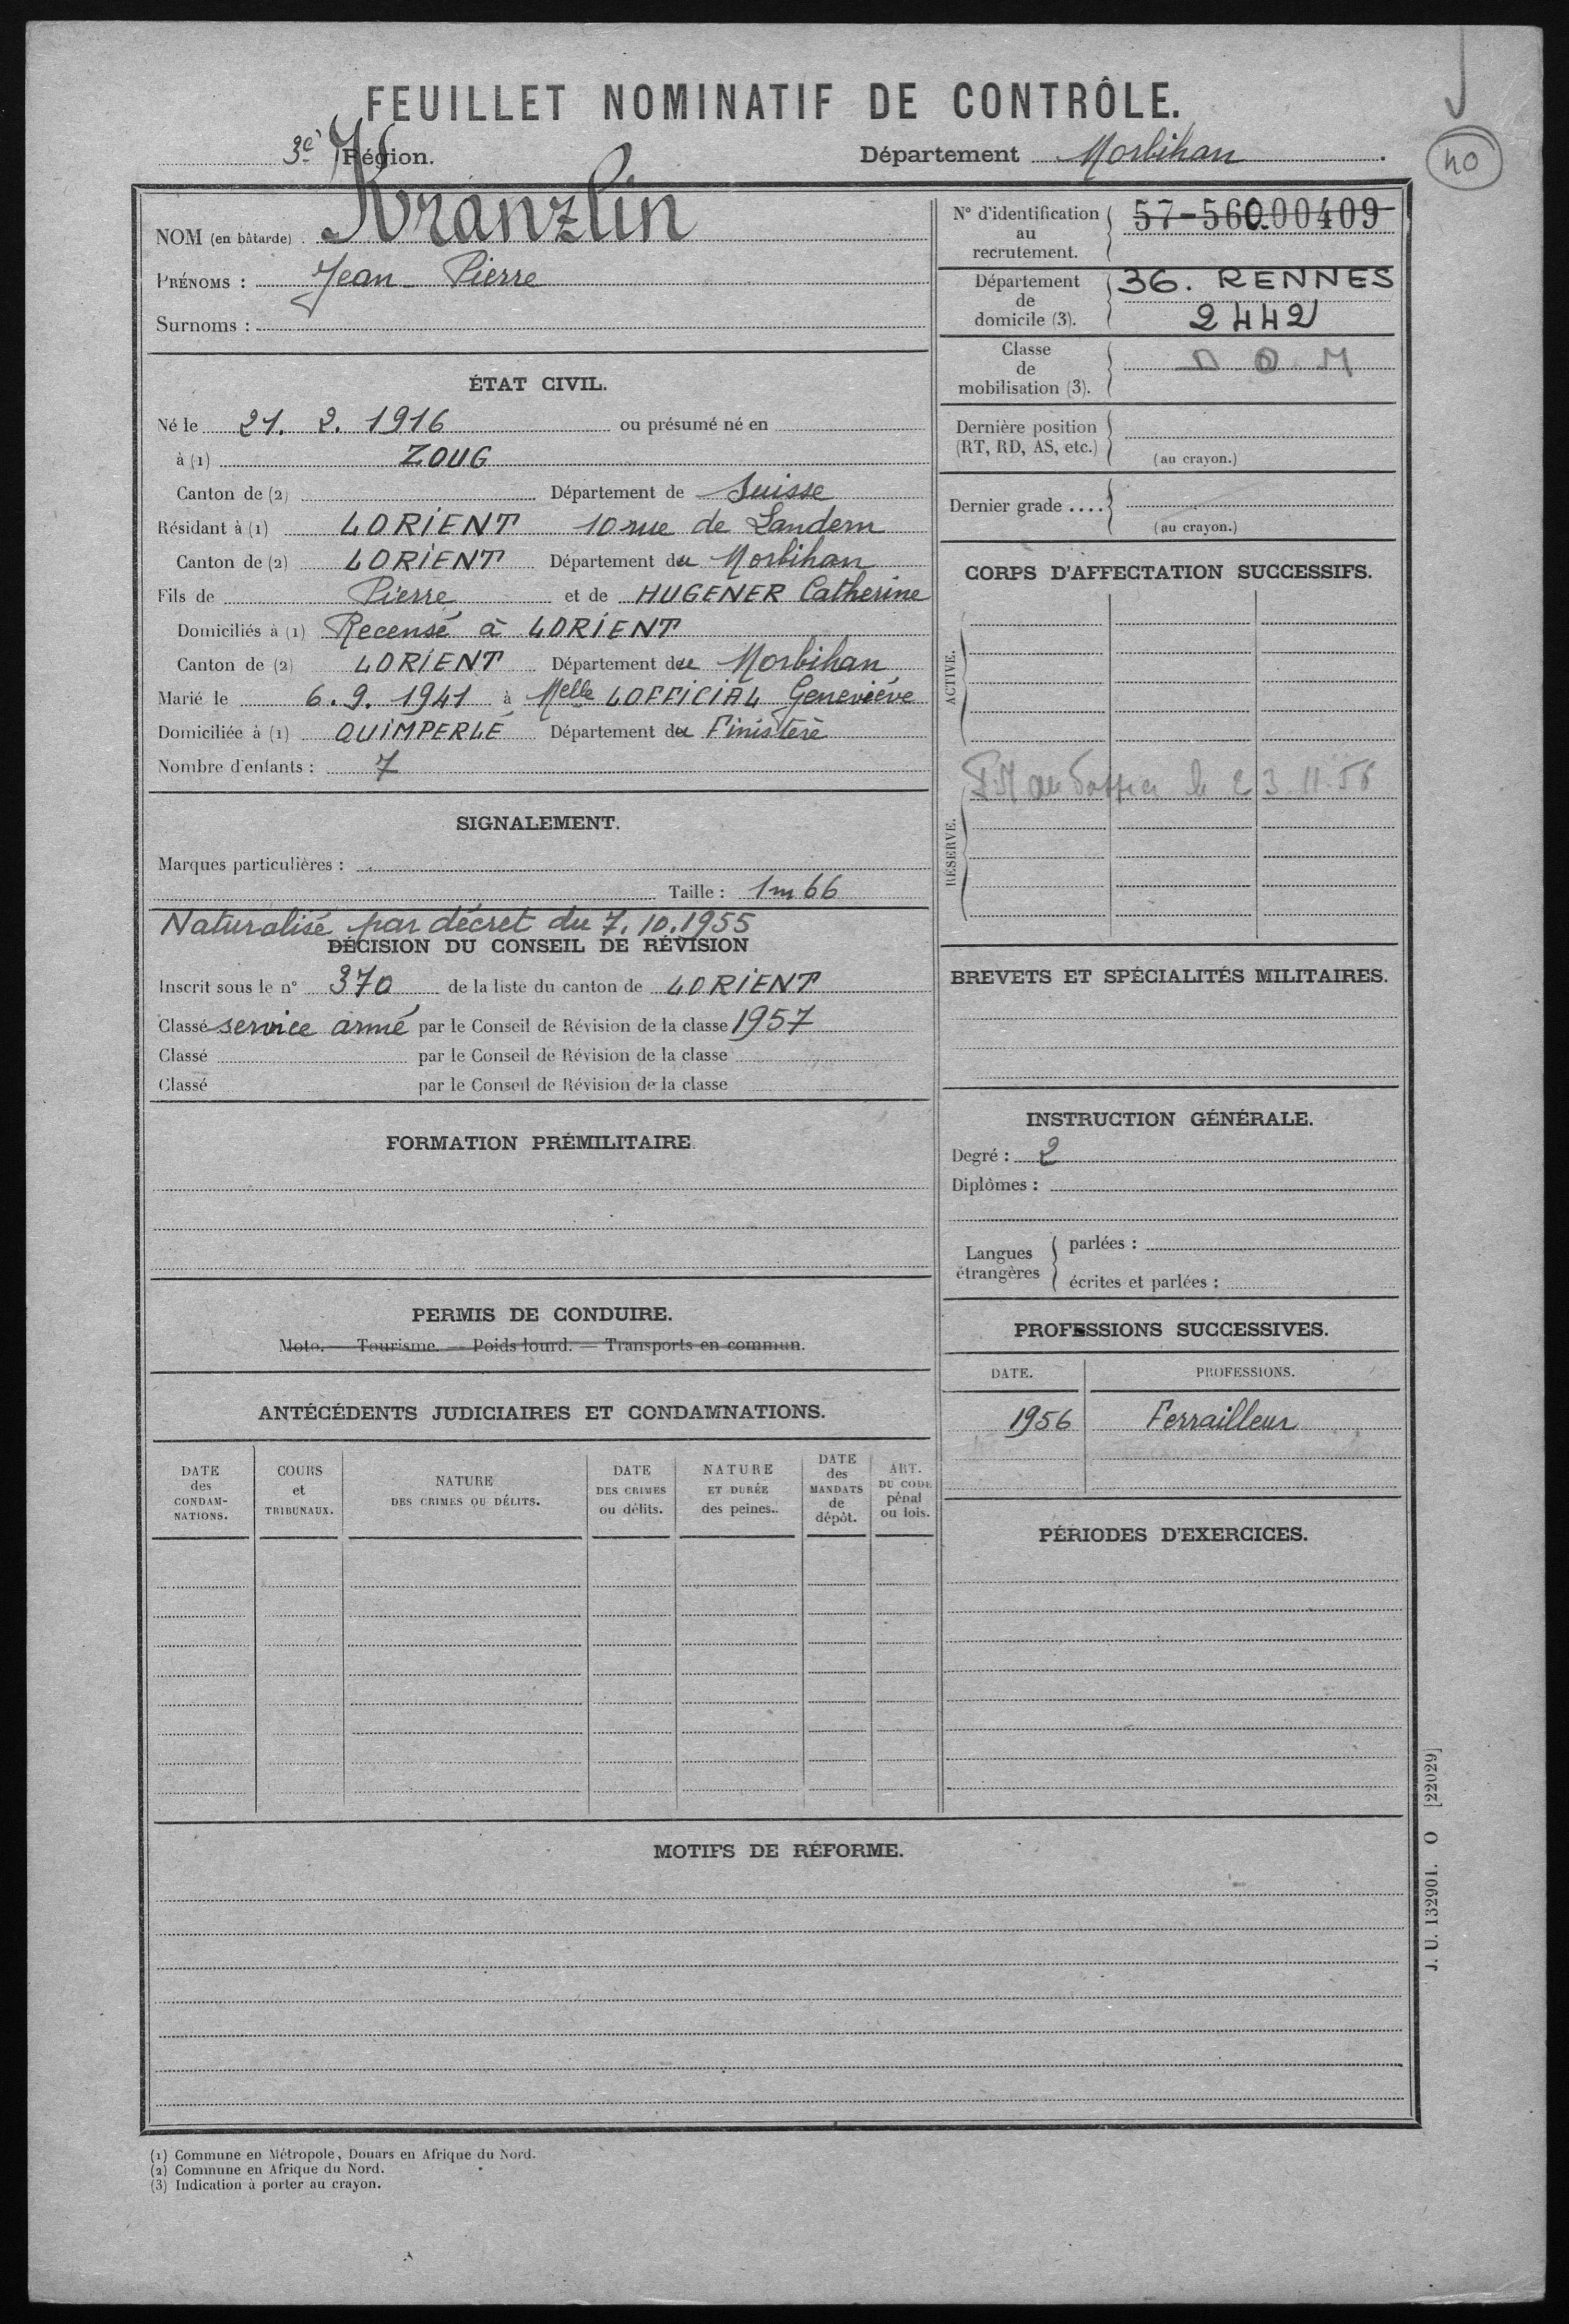 FEUILLET NOMINATIF DE CONTRÔLE.
3e Région. Département Morbihan.
40
NOM (en bâtarde). Kranzlin
PRÉNOMS : Jean-Pierre
Surnoms :
ÉTAT CIVIL.
Né le 21. 2. 1916 ou présumé né en
à (1) ZOUG
Canton de (2) Département de Suisse
Résidant à (1) LORIENT 10 rue de Landern
Canton de (2) LORIENT Département du Morbihan
Fils de Pierre et de HUGENER Catherine
Domiciliés à (1) Recensé à LORIENT
Canton de (2) LORIENT Département du Morbihan
Marié le 6. 9. 1941 à Melle LOFFICIAL Geneviève
Domiciliée à (1) QUIMPERLÉ Département du Finistère
Nombre d'enfants : 7
SIGNALEMENT.
Marques particulières :
Taille : 1m66
Naturalisé par décret du 7.10.1955
DÉCISION DU CONSEIL DE RÉVISION
Inscrit sous le n° 370 de la liste du canton de LORIENT
Classé service armé par le Conseil de Révision de la classe 1957
Classé par le Conseil de Révision de la classe
Classé par le Conseil de Révision de la classe
FORMATION PRÉMILITAIRE
PERMIS DE CONDUIRE.
Moto. — Tourisme. — Poids lourd. — Transports en commun.
ANTÉCÉDENTS JUDICIAIRES ET CONDAMNATIONS.
DATE des CONDAMNATIONS.
COURS et TRIBUNAUX.
NATURE DES CRIMES OU DÉLITS.
DATE DES CRIMES ou délits.
NATURE ET DURÉE des peines.
DATE des MANDATS de dépôt.
ART. DU CODE pénal ou lois.
N° d'identification au recrutement. 57-560.00409
Département de domicile (3). 36. RENNES
2442
Classe de mobilisation (3). D O M
Dernière position (RT, RD, AS, etc.)
(au crayon.)
Dernier grade ....
(au crayon.)
CORPS D'AFFECTATION SUCCESSIFS.
ACTIVE.
RÉSERVE.
au le 23.11.56
BREVETS ET SPÉCIALITÉS MILITAIRES.
INSTRUCTION GÉNÉRALE.
Degré : 2
Diplômes :
Langues étrangères
parlées :
écrites et parlées :
PROFESSIONS SUCCESSIVES.
DATE. PROFESSIONS.
1956 Ferrailleur
PÉRIODES D'EXERCICES.
MOTIFS DE RÉFORME.
J. U. 132901. O [22029]
(1) Commune en Métropole, Douars en Afrique du Nord.
(2) Commune en Afrique du Nord.
(3) Indication à porter au crayon.